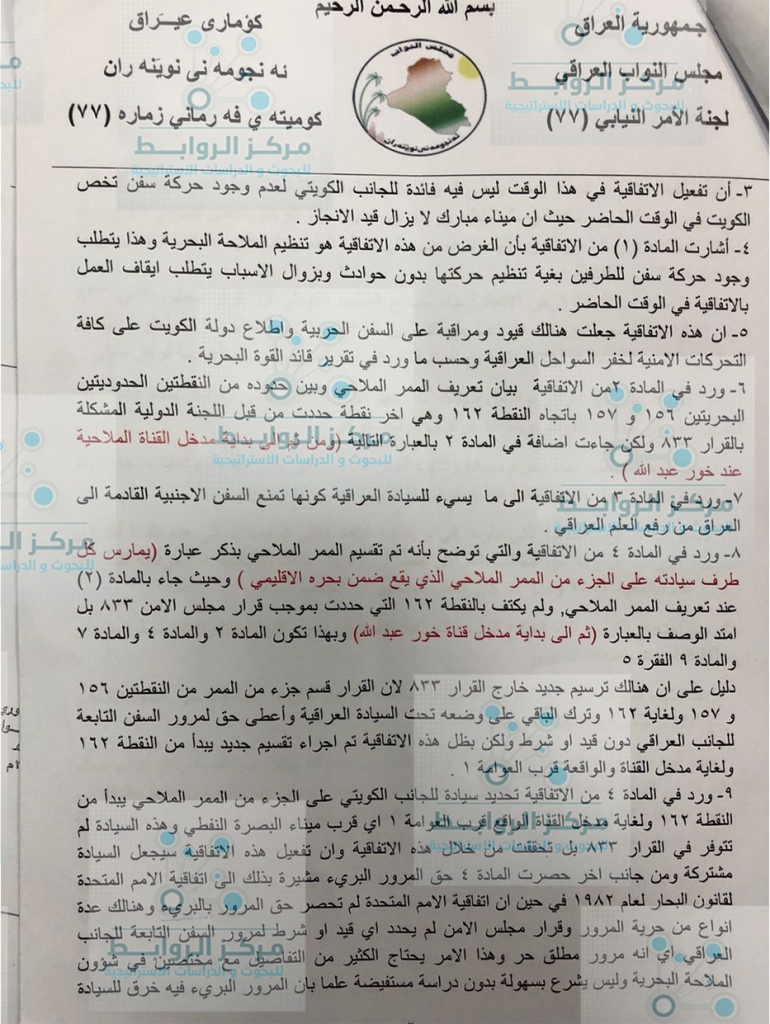 بسم الله الرحمن الرحيم
جمهورية العراق
مجلس النواب العراقي
لجنة الأمر النيابي (٧٧)
كۆماری عیـراق
ئه نجومه نی نوێنه ران
كوميته ي فه رماني زماره (٧٧)
مجلس النواب
ئه نجومه نی نوێنه ران
٣- أن تفعيل الاتفاقية في هذا الوقت ليس فيه فائدة للجانب الكويتي لعدم وجود حركة سفن تخص
الكويت في الوقت الحاضر حيث ان ميناء مبارك لا يزال قيد الانجاز .
٤- أشارت المادة (١) من الاتفاقية بأن الغرض من هذه الاتفاقية هو تنظيم الملاحة البحرية وهذا يتطلب
وجود حركة سفن للطرفين بغية تنظيم حركتها بدون حوادث وبزوال الاسباب يتطلب ايقاف العمل
بالاتفاقية في الوقت الحاضر .
٥- ان هذه الاتفاقية جعلت هنالك قيود ومراقبة على السفن الحربية واطلاع دولة الكويت على كافة
التحركات الامنية لخفر السواحل العراقية وحسب ما ورد في تقرير قائد القوة البحرية .
٦- ورد في المادة ٢من الاتفاقية بيان تعريف الممر الملاحي وبين حدوده من النقطتين الحدوديتين
البحريتين ١٥٦ و ١٥٧ باتجاه النقطة ١٦٢ وهي اخر نقطة حددت من قبل اللجنة الدولية المشكلة
بالقرار ٨٣٣ ولكن جاءت اضافة في المادة ٢ بالعبارة التالية (ومن ثم الى بداية مدخل القناة الملاحية
عند خور عبد الله ) .
٧- ورد في المادة ٣ من الاتفاقية الى ما يسيء للسيادة العراقية كونها تمنع السفن الاجنبية القادمة الى
العراق من رفع العلم العراقي .
٨- ورد في المادة ٤ من الاتفاقية والتي توضح بأنه تم تقسيم الممر الملاحي بذكر عبارة (يمارس كل
طرف سيادته على الجزء من الممر الملاحي الذي يقع ضمن بحره الاقليمي ) وحيث جاء بالمادة (٢)
عند تعريف الممر الملاحي, ولم يكتف بالنقطة ١٦٢ التي حددت بموجب قرار مجلس الامن ٨٣٣ بل
امتد الوصف بالعبارة (ثم الى بداية مدخل قناة خور عبد الله) وبهذا تكون المادة ٢ والمادة ٤ والمادة ٧
والمادة ٩ الفقرة ٥
دليل على ان هنالك ترسيم جديد خارج القرار ٨٣٣ لان القرار قسم جزء من الممر من النقطتين ١٥٦
و ١٥٧ ولغاية ١٦٢ وترك الباقي على وضعه تحت السيادة العراقية وأعطى حق لمرور السفن التابعة
للجانب العراقي دون قيد او شرط ولكن بظل هذه الاتفاقية تم اجراء تقسيم جديد يبدأ من النقطة ١٦٢
ولغاية مدخل القناة والواقعة قرب العوامة ١ .
٩- ورد في المادة ٤ من الاتفاقية تحديد سيادة للجانب الكويتي على الجزء من الممر الملاحي يبدأ من
النقطة ١٦٢ ولغاية مدخل القناة الواقع قرب العوامة ١ اي قرب ميناء البصرة النفطي وهذه السيادة لم
تتوفر في القرار ٨٣٣ بل تحققت من خلال هذه الاتفاقية وان تفعيل هذه الاتفاقية سيجعل السيادة
مشتركة ومن جانب اخر حصرت المادة ٤ حق المرور البريء مشيرة بذلك الى اتفاقية الامم المتحدة
لقانون البحار لعام ١٩٨٢ في حين ان اتفاقية الامم المتحدة لم تحصر حق المرور بالبريء وهنالك عدة
انواع من حرية المرور وقرار مجلس الامن لم يحدد اي قيد او شرط لمرور السفن التابعة للجانب
العراقي أي انه مرور مطلق حر وهذا الامر يحتاج الكثير من التفاصيل مع مختصين في شؤون
الملاحة البحرية وليس يشرع بسهولة بدون دراسة مستفيضة علما بان المرور البريء فيه خرق للسيادة
مركز الروابط
للبحوث و الدراسات الاستراتيجية